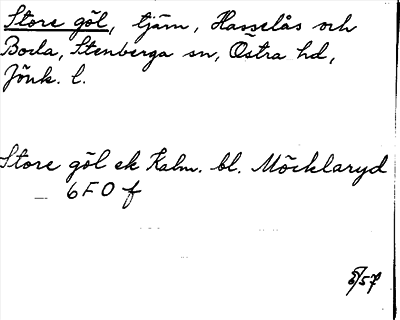 Store göl, tjärn, Hasselås och
Boda, Stenberga sn, Östra hd,
Jönk. l.
Store göl ek Kalm. bl. Möcklaryd
— 6F0f